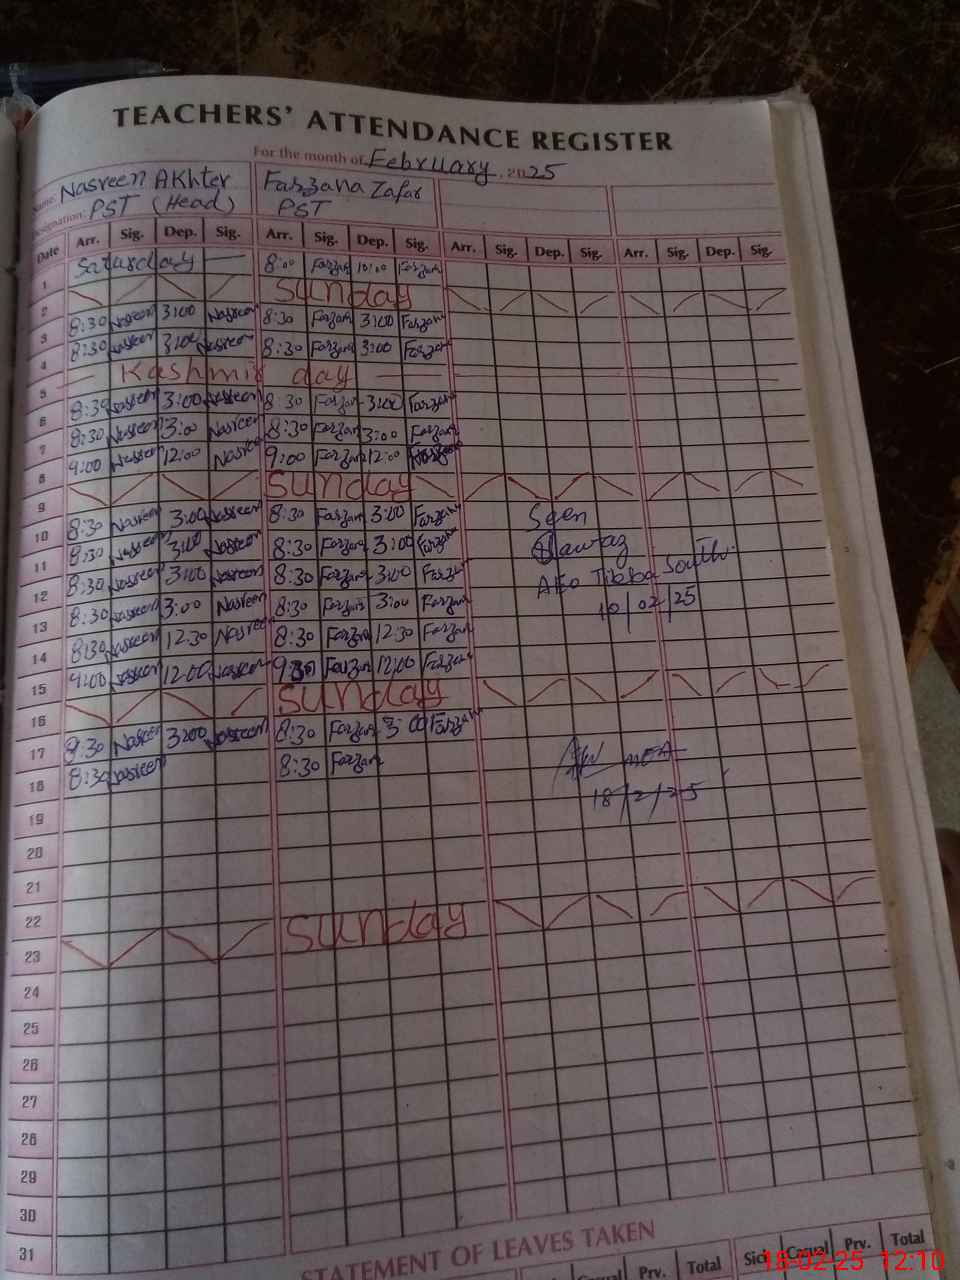 TEACHERS' ATTENDANCE REGISTER
For the month of February 2025
Name Nasreen Akhter Farzana Zafar
Designation PST (Head) PST
Date Arr. Sig. Dep. Sig. Arr. Sig. Dep. Sig. Arr. Sig. Dep. Sig. Arr. Sig. Dep. Sig.
1 Saturday 8:00 Farzan 10:00 Farzan
2 Sunday
3 8:30 Nasreen 3:00 Nasreen 8:30 Farzan 3:00 Farzan
4 8:30 Nasreen 3:00 Nasreen 8:30 Farzan 3:00 Farzan
5 Kashmir day
6 8:30 Nasreen 3:00 Nasreen 8:30 Farzan 3:00 Farzan
7 8:30 Nasreen 3:00 Nasreen 8:30 Farzan 3:00 Farzan
8 9:00 Nasreen 12:00 Nasreen 9:00 Farzan 12:00
9 Sunday
10 8:30 Nasreen 3:00 Nasreen 8:30 Farzan 3:00 Farzan Seen
11 8:30 Nasreen 3:00 Nasreen 8:30 Farzan 3:00 Farzan
12 8:30 Nasreen 3:00 Nasreen 8:30 Farzan 3:00 Farzan AEO Tibba South
13 8:30 Nasreen 3:00 Nasreen 8:30 Farzan 3:00 Farzan 10/02/25
14 8:30 Nasreen 12:30 Nasreen 8:30 Farzan 12:30 Farzan
15 9:00 Nasreen 12:00 Nasreen 9:30 Farzan 12:00 Farzan
16 Sunday
17 8:30 Nasreen 3:00 Nasreen 8:30 Farzan 3:00 Farzan
18 8:30 Nasreen 8:30 Farzan MEA
19 18/2/25
20
21
22
23 Sunday
24
25
26
27
28
29
30
31
STATEMENT OF LEAVES TAKEN
Casual Prv. Total Sick Casual Prv. Total
18-02-25 12:10